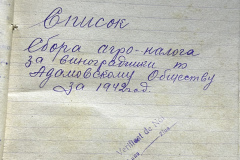 Список
Сбора агро-налога
за виноградники по
Адамовскому Обществу
за 1942 год.
Verificat de noi